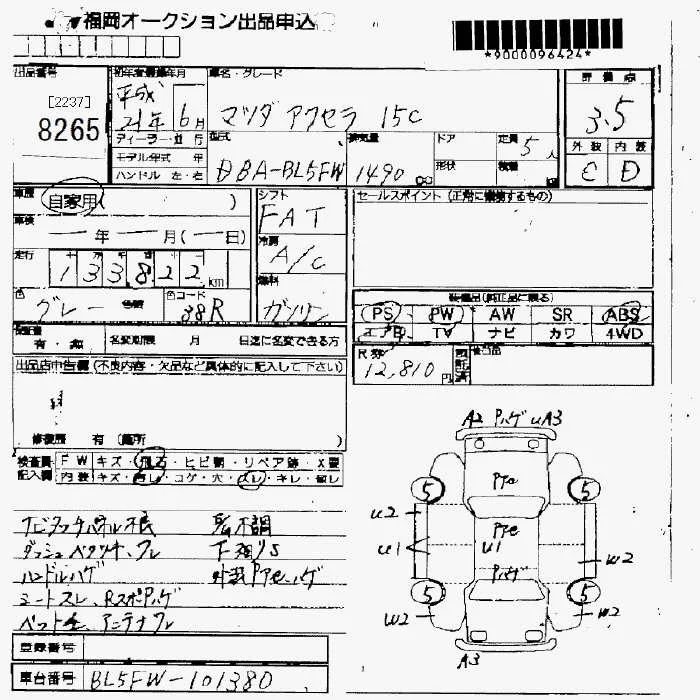 福岡オークション出品申込
*9000096424*
出品番号
[2237]
8265
初年度登録年月
平成
21年 6月
車名・グレード
マツダ アクセラ 15C
評価点
3.5
外装 内装
C D
ディーラー・並行
モデル年式 年
ハンドル 左・右
型式
DBA-BL5FW
排気量
1490 cc
ドア
形状
定員 5人
積載
車歴
自家用( )
車検
年 月(一日)
走行
133,822 km
色
グレー
色替
色コード
38R
シフト
FAT
冷房
A/C
燃料
ガソリン
セールスポイント(正常に機能するもの)
装備品(純正品に限る)
PS PW AW SR ABS
エアB TV ナビ カワ 4WD
R券
12,810円
有・無
名変期限 月 日迄に名変できる方
出品店申告欄(不良内容・欠品など具体的に記入して下さい)
修復歴 有(箇所 )
検査員 FW キズ・飛石・ヒビ割・リペア跡・X要
記入欄 内装 キズ・コゲ・穴・スレ・キレ
ハンドルハゲ
シートスレ、RスポPハゲ
A2 Pハゲ UA3
5 5
U2
U1
U1
W2
Pハゲ
5 5
W2 W2
A3
登録番号
車台番号 BL5FW-101380